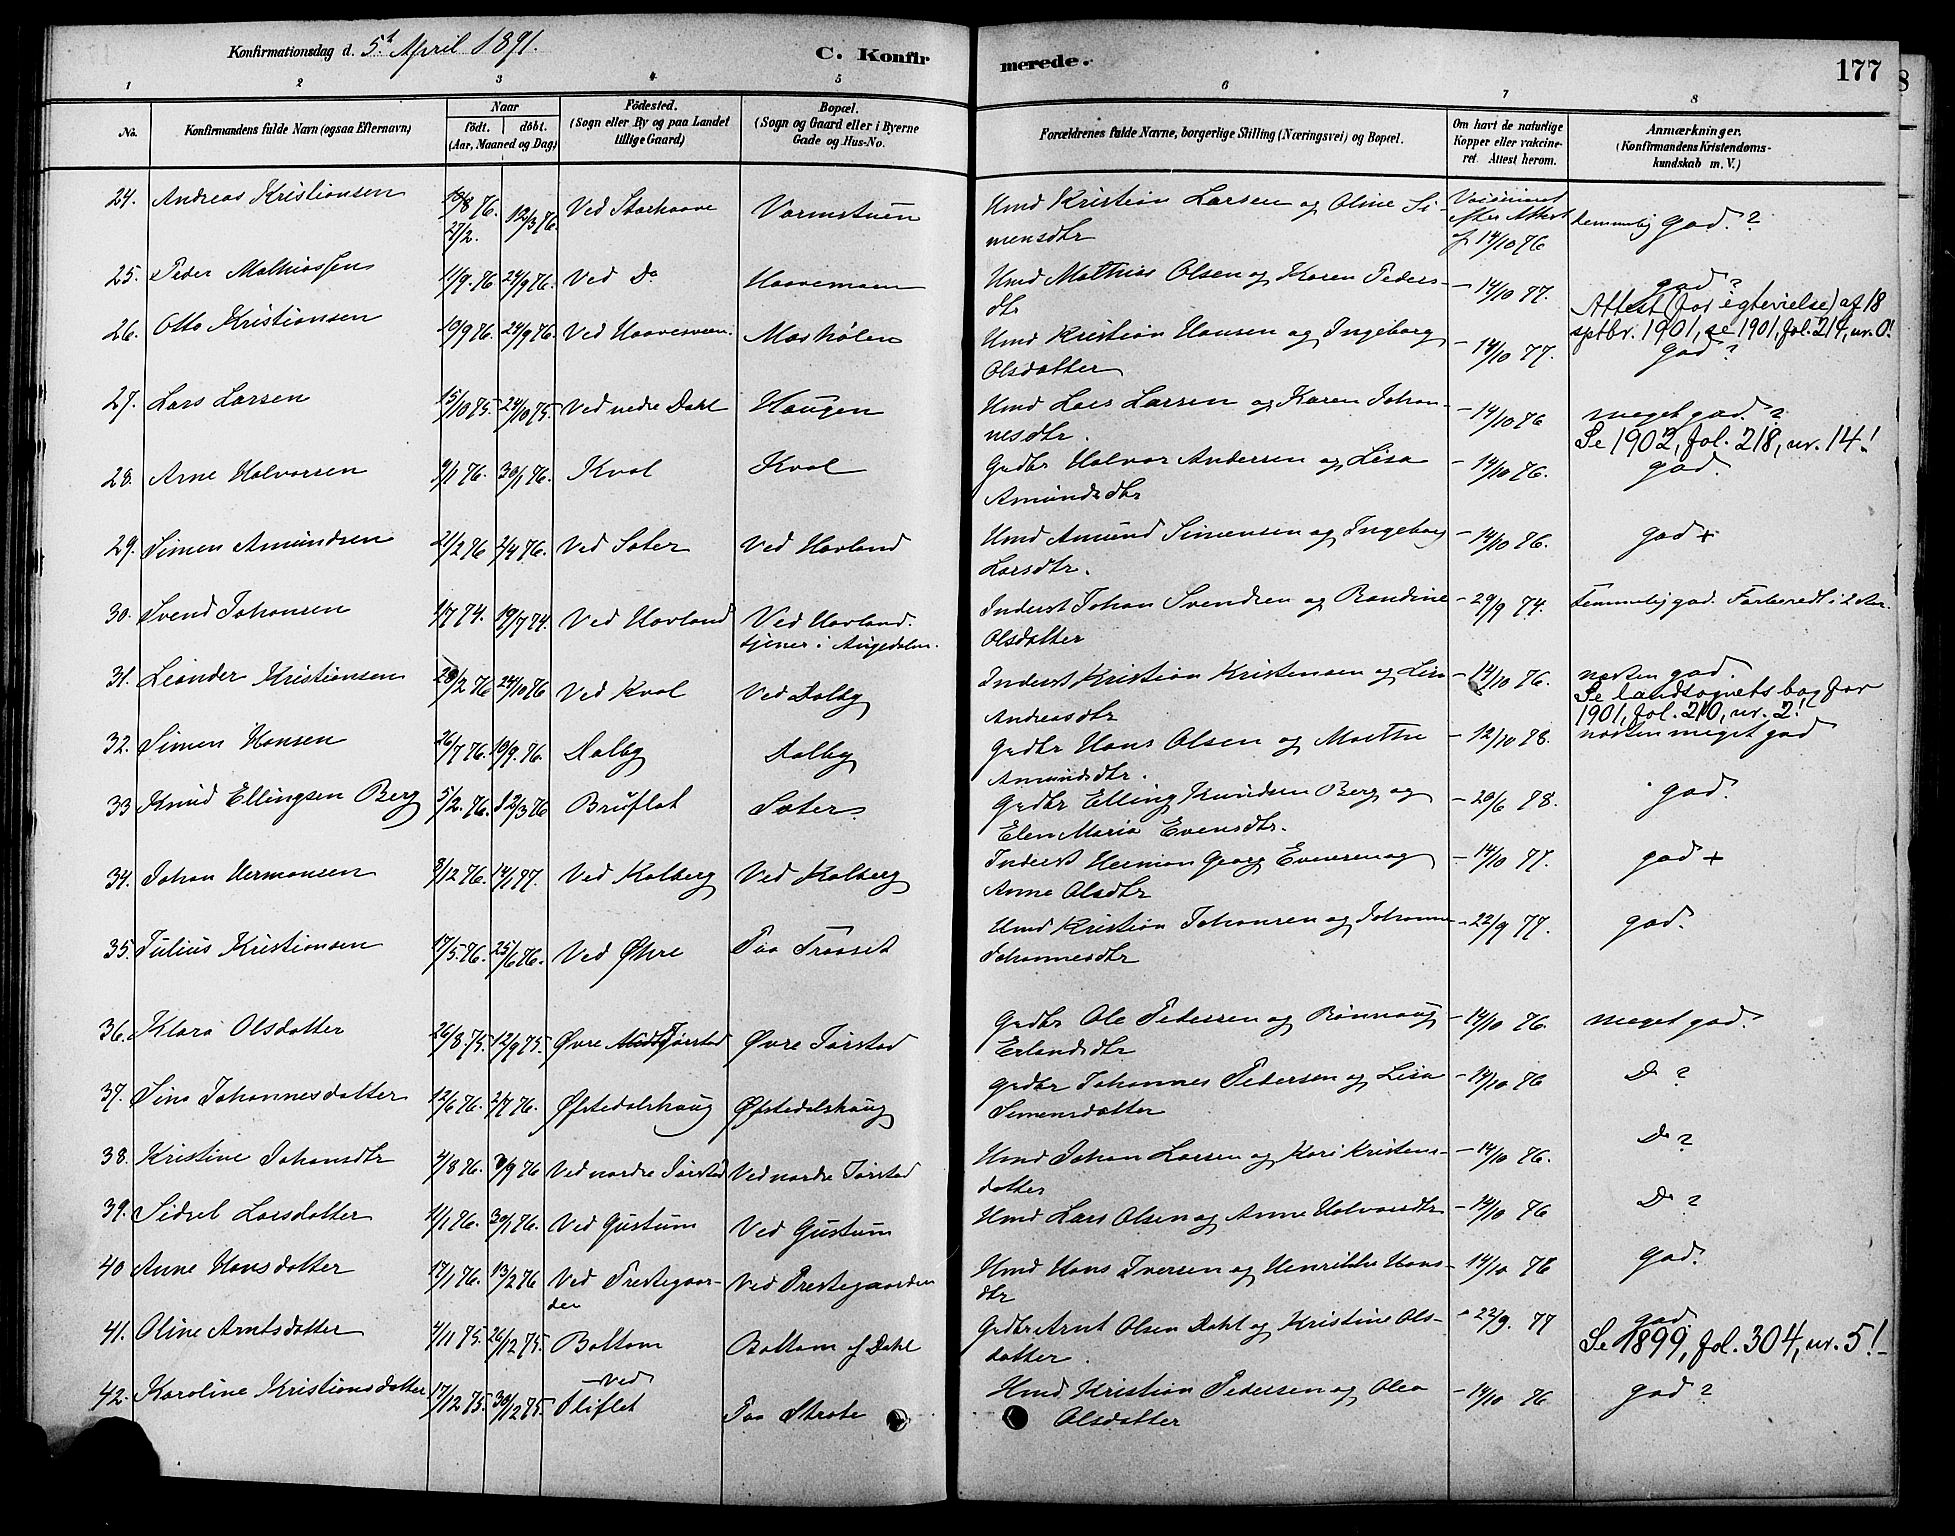 Konfirmationsdag d. 5t April 1891.
C. Konfirmerede.
177
1 2 3 4 5 6 7 8
No.
Konfirmandens fulde Navn (ogsaa Efternavn)
Naar
født. døbt.
(Aar, Maaned og Dag)
Fødested.
(Sogn eller By og paa Landet
tillige Gaard)
Bopæl.
(Sogn og Gaard eller i Byerne
Gade og Hus-No.
Forældrenes fulde Navne, borgerlige Stilling (Næringsvei) og Bopæl.
Om havt de naturlige
Kopper eller vakcine-
ret. Attest herom.
Anmærkninger.
(Konfirmandens Kristendoms-
kundskab m. V.)
24. Andreas Kristiansen 27/2. 12/3 76. Ved Varmstuen Hmd Kristian Larsen og Oline Si-
mensdtr efter Attest af 14/10 76 temmelig god. ?
25. Peder Mathiassen 11/9. 76 24/9 76. Ved Do Haavemoen Hmd Mathias Olsen og Karen Peders-
dtr - 14/10 77. god ?
26. Otto Kristiansen 10/9 76. 24/9 76. Ved Hmd Kristian Hansen og Ingeborg
Olsdatter - 14/10 77. Attest (for egtevielse) af 18
sptbr. 1901, se 1901, fol. 214, nr. 0!
god ?
27. Lars Larsen 15/10 75. 24/10 75. Ved nedre Dahl Haugen Hmd Lars Larsen og Karen Johan-
nesdtr. - 14/10 76 meget god. ?
28. Arne Halvorsen 9/1 76. 30/1 76. Kval Kval Grdbr Halvor Andersen og Lisa
Amundsdtr - 14/10 76. Se 1902, fol. 218, nr. 14!
god.
29. Simen Amundsen 21/2 76 2/4 76. Ved Soter Ved Havland Hmd Amund Simensen og Ingeborg
Larsdtr. - 14/10 76. god +
30. Svend Johansen 1/7 74. 19/7 74. Ved Havland Ved Havland.
tjener i Inderst Johan Svendsen og Randine
Olsdatter - 29/9 74. Temmelig god. Forberedt i 2 Aar.
31. Leander Kristiansen 24/10 76 Ved Kval Ved Dalby Inderst Kristian Kristensen og Lisa
Andreasdtr - 14/10 76. næsten god.
Se landsognets bog for
1901, fol. 210, nr. 2!
32. Simen Hansen 26/7 76. 10/9. 76. Dalby Dalby Grdbr Hans Olsen og Marthe
Amundsdtr. - 12/10 78. næsten meget god
33 Knud Ellingsen Berg 5/2. 76. 12/3 76 Bruflat Soter Grdbr Elling Knudsen Berg og
Elen Maria Evensdtr. - 20/6 78. god.
34. Johan Hermansen 8/12 76. 14/1 77. Ved Kolberg Ved Kolberg Inderst Herman Georg Evensen og
Anne Olsdtr - 14/10 77. god +
35. Julius Kristiansen 17/5. 76. 25/6 76. Ved Øhre Paa Traaset Hmd Kristian Johansen og Johanne
Johannesdtr - 22/9 77. god.
36. Klara Olsdatter 26/8. 75. 12/9 75. Øvre Tørstad Øvre Tørstad Grdbr Ole Pedersen og Rønnaug
Erlandsdtr - 14/10 76. meget god.
37. Sina Johannesdatter 12/6 76. 2/7 76. Øfstedalshaug Øfstedalshaug Grdbr Johannes Pedersen og Lisa
Simensdatter - 14/10 76 Do ?
38. Kristine Johansdtr 4/8 76. 3/9 76 Ved nordre Tørstad Ved nordre Tørstad Hmd Johan Larsen og Kari Kristens-
datter - 14/10 76. Do ?
39. Sidsel Larsdatter 11/1 76. 30/1 76. Ved Gustum Ved Gustum Hmd Lars Olsen og Anne Halvorsdtr - 14/10 76 Do ?
40 Anne Hansdatter 17/1 76. 13/2 76 Ved Prestegaar-
den Ved Prestegaarden Hmd Hans Iversen og Henrikke Hans-
dtr - 14/10 76 god.
41. Oline Arntsdatter 4/11 75. 26/12 75. Boltom Boltom af Dahl Grdbr Arnt Olsen Dahl og Kristine Ols-
datter. - 22/9. 77 god.
Se 1899, fol. 304, nr. 5!
42. Karoline Kristiansdatter 17/12 75. 30/12 75. Ved
Fliflet Paa Strate Hmd. Kristian Pedersen og Olea
Olsdatter - 14/10 76 god ?